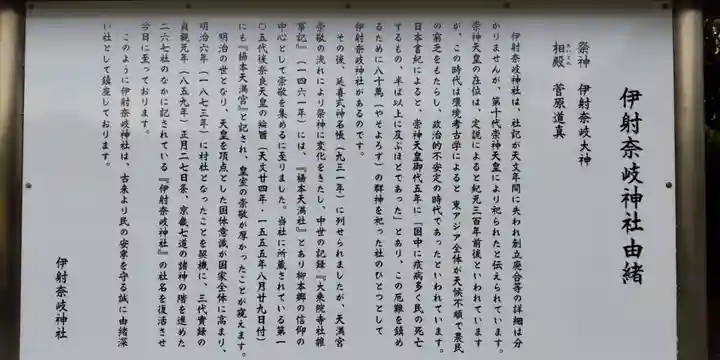 伊射奈岐神社由緒
祭神　伊射奈岐大神
相殿　菅原道真
あいどの
伊射奈岐神社は、社記が天文年間に失われ創立廃合等の詳細は分
かりませんが、第十代崇神天皇により祀られたと伝えられています。
崇神天皇の在位は、定説によると紀元三百年前後といわれています
が、この時代は環境考古学によると東アジア全体が天候不順で農民
の窮乏をもたらし、政治的不安定の時代であったといわれています。
日本書紀によると、崇神天皇御代五年に「国中に疫病多く民の死亡
するもの、半ば以上に及ぶほどであった」とあり、この厄難を鎮め
るために八十萬（やそよろず）の群神を祀った社のひとつとして
伊射奈岐神社があるのです。
その後、延喜式神名帳（九三一年）に列せられましたが、天満宮
崇敬の流れにより祭神に変化をきたし、中世の記録『大乗院寺社雑
事記』（一四六一年）には、『楊本天満社』とあり柳本郷の信仰の
中心として崇敬を集めるに至りました。当社に所蔵されている第一
〇五代後奈良天皇の綸旨（天文廿四年・一五五五年八月廿九日付）
にも『楊本天満宮』と記され、皇室の崇敬が厚かったことが窺えます。
明治の世となり、天皇を頂点とした国体意識が国家全体に高まり、
明治六年（一八七三年）に村社となったことを契機に、三代実録の
貞観元年（八五九年）正月二七日条、京畿七道の諸神の階を進めた
二六七社のなかに記されている『伊射奈岐神社』の社名を復活させ
今日に至っております。
このように伊射奈岐神社は、古来より民の安寧を守る誠に由緒深
い社として鎮座しております。
伊射奈岐神社